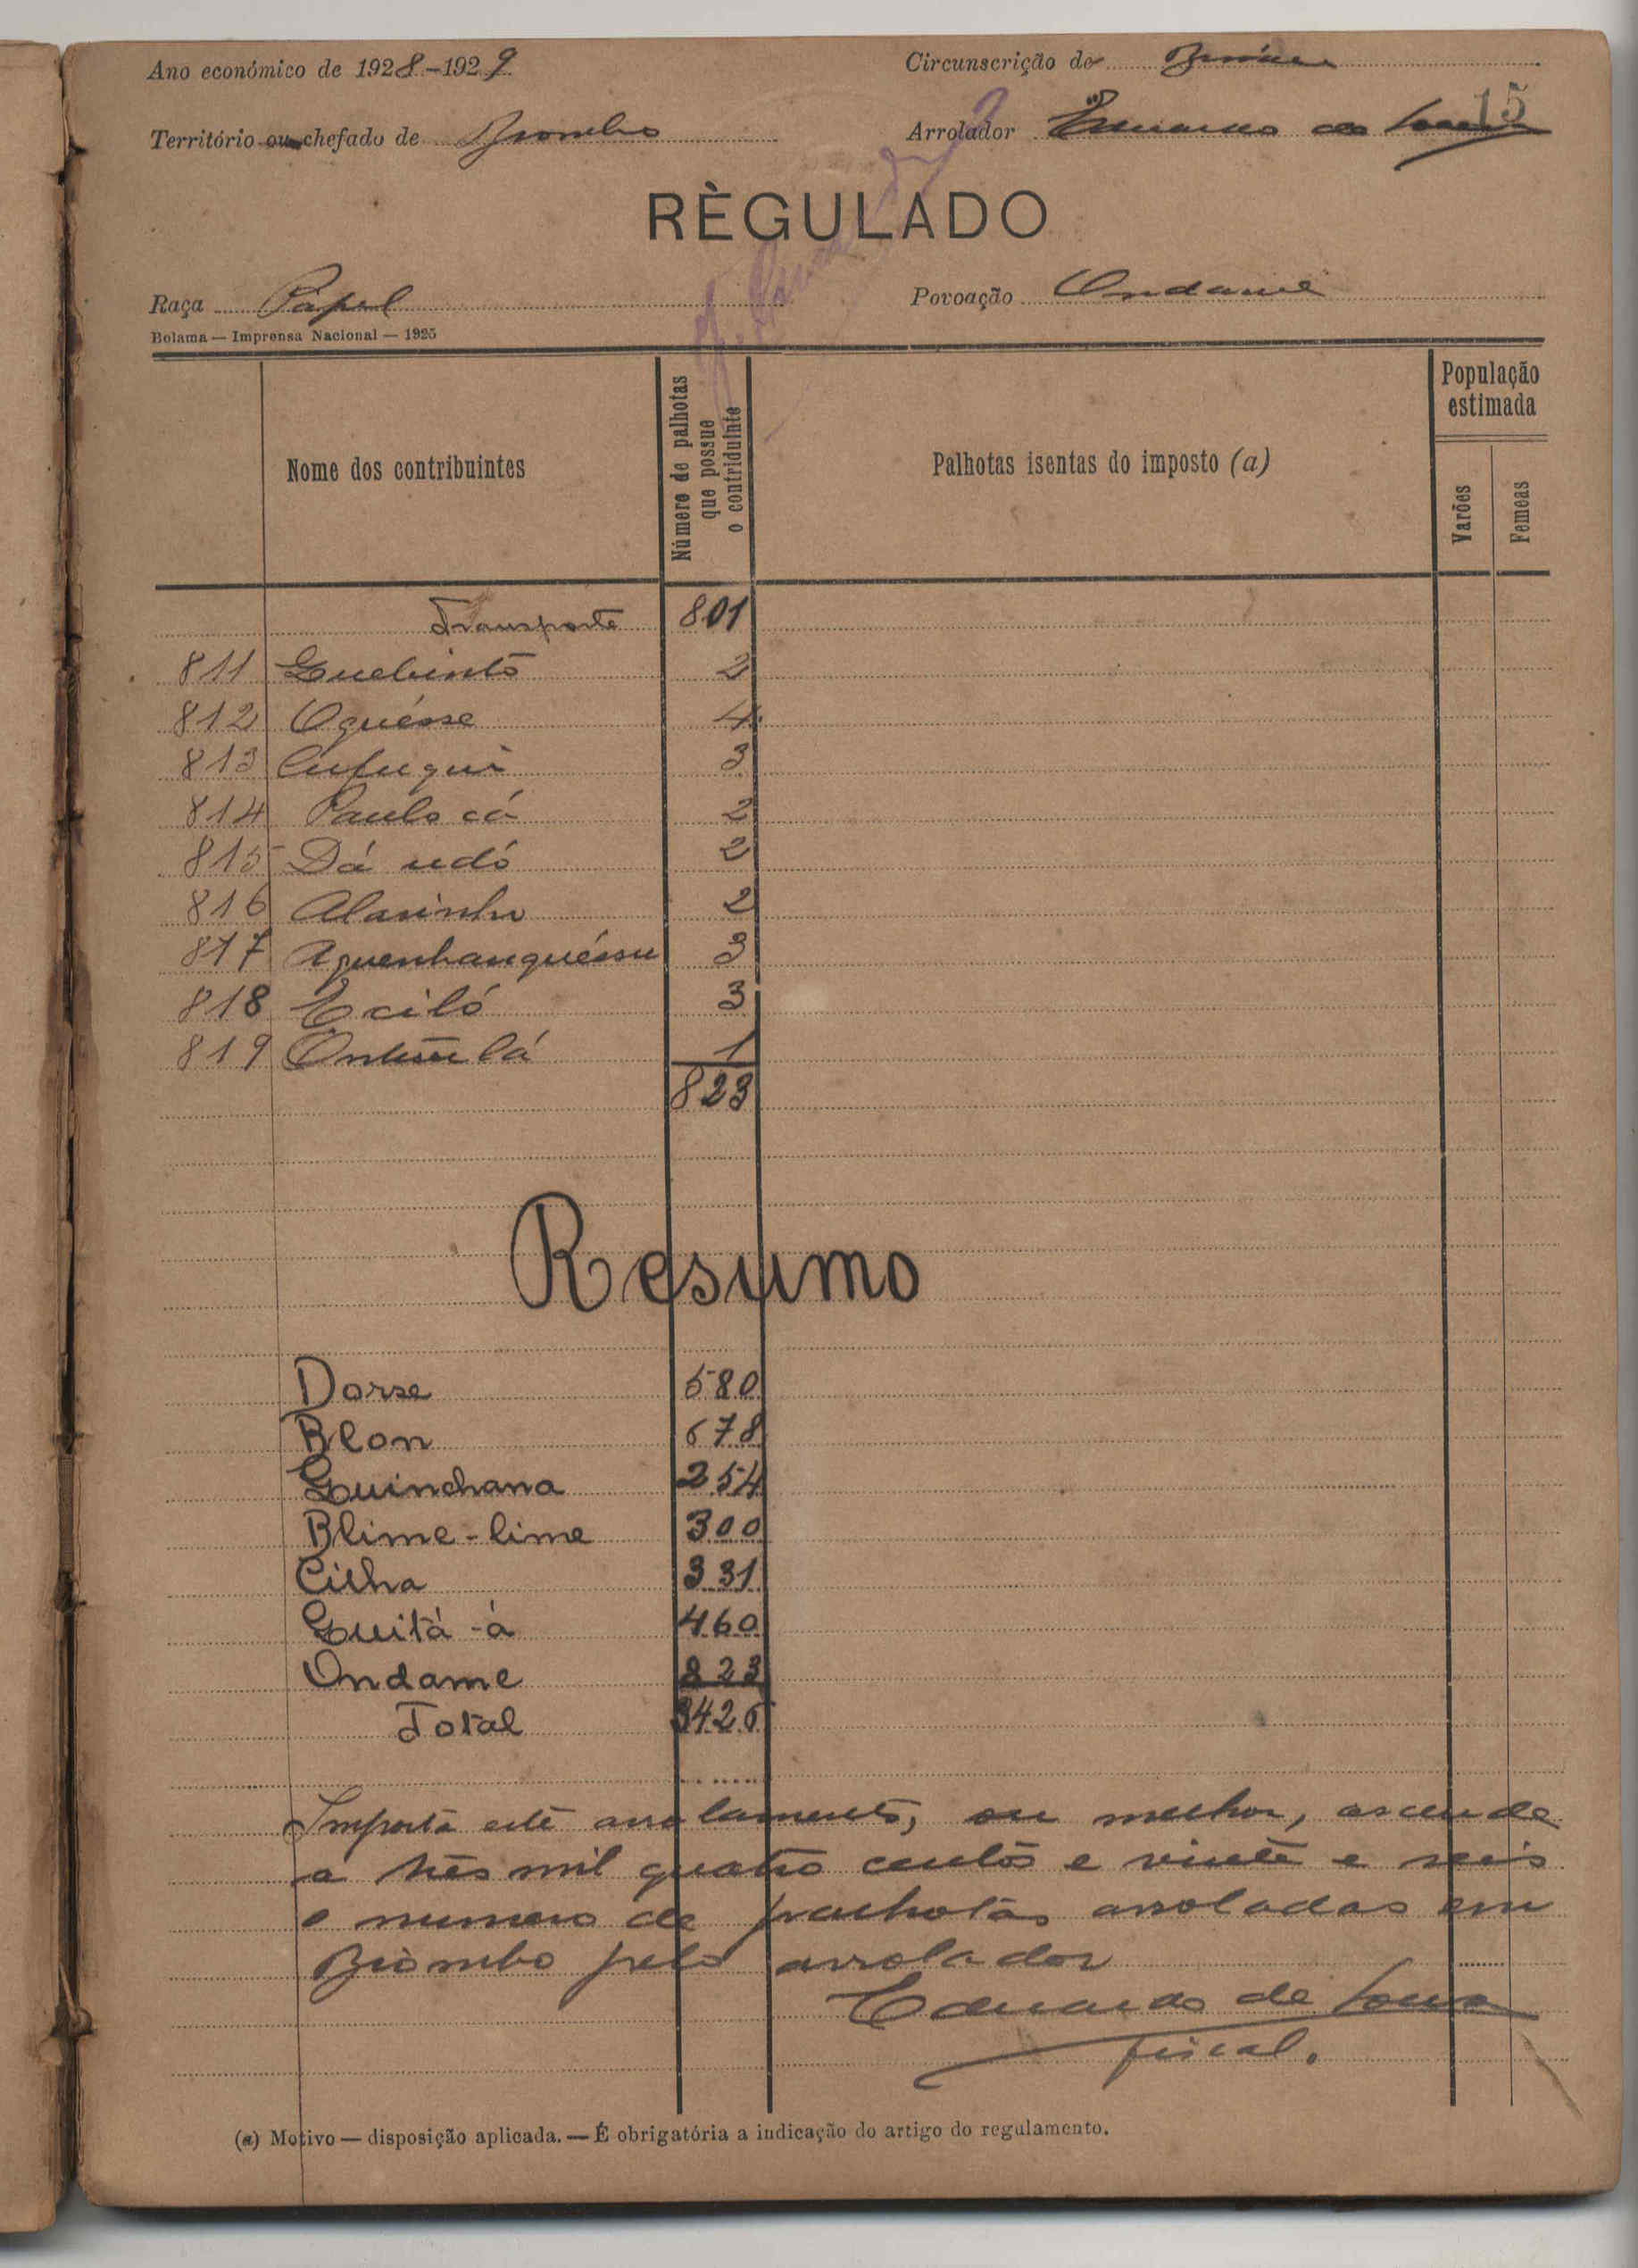 Ano económico de 1928-1929
Circunscrição de
15
Território ou chefado de Biombo
Arrolador Eduardo de Sousa
RÈGULADO
Raça Papel
Povoação Ondame
Bolama — Imprensa Nacional — 1925
Nome dos contribuintes
Número de palhotas que possue o contriduinte
Palhotas isentas do imposto (a)
População estimada
Varões
Femeas
Transporte 801
811 Guebinto 2
812 Oquésse 4
813 Cufuqui 3
814 Paulo có 2
815 Dá udó 2
816 Alasinho 2
817 Aquenhanquéssu 3
818 Eciló 3
819 lá 1
823
Resumo
Dorse 580
Blon 678
Guinchana 254
Blime-lime 300
Cilha 331
Guitá-á 460
Ondame 823
Total 3426
Importa este arrolamento, ou melhor, ascende
a três mil quatro centos e vinte e seis
o numero de palhotas arroladas em
Biombo pelo arrolador
Eduardo de Sousa
fiscal.
(a) Motivo — disposição aplicada. — É obrigatória a indicação do artigo do regulamento.